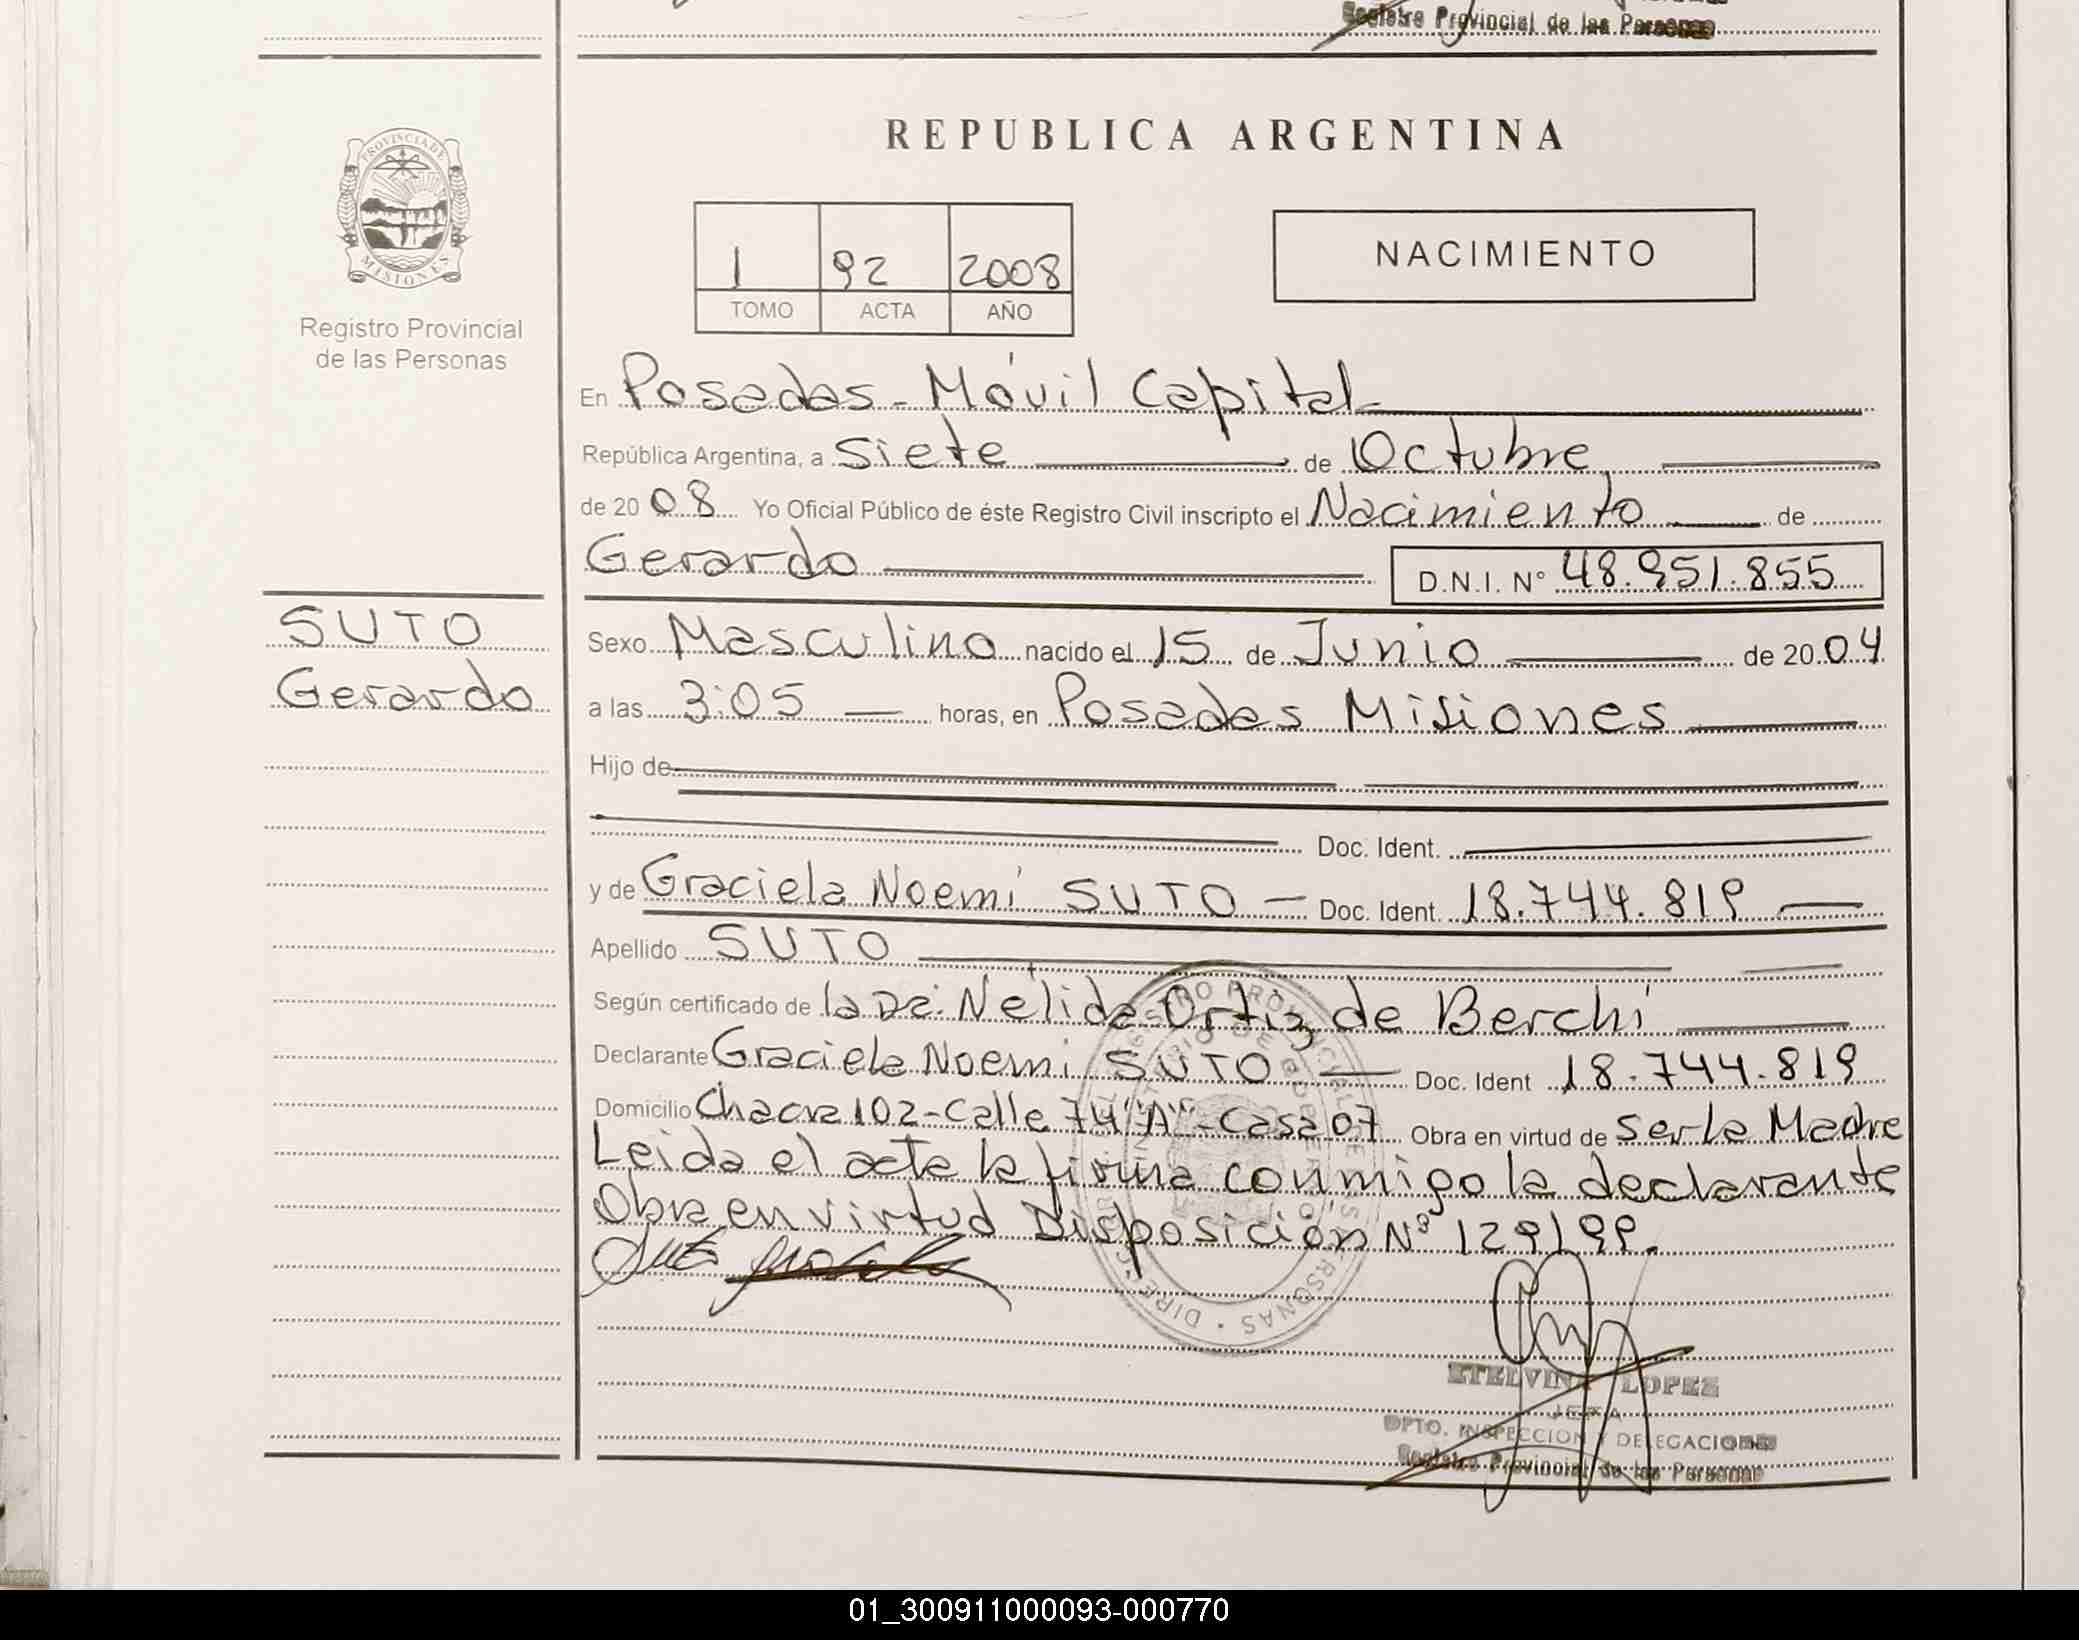 Registro Provincial de las Personas
REPUBLICA ARGENTINA
PROVINCIA DE
MISIONES
Registro Provincial
de las Personas
1 92 2008
TOMO ACTA AÑO
NACIMIENTO
En Posadas - Móvil Capital
República Argentina, a Siete de Octubre
de 2008 Yo Oficial Público de éste Registro Civil inscripto el Nacimiento de
Gerardo D.N.I. N° 48.951.855
SUTO
Gerardo
Sexo Masculino nacido el 15 de Junio de 2004
a las 3:05 horas, en Posadas Misiones
Hijo de
Doc. Ident.
y de Graciela Noemí SUTO — Doc. Ident. 18.744.819
Apellido SUTO
Según certificado de la Dra. Nélida Ortiz de Berchi
Declarante Graciela Noemi SUTO — Doc. Ident 18.744.819
Domicilio Chacra 102 - Calle 74 "A" - Casa 07 Obra en virtud de Ser la Madre
Leida el acta la firma conmigo la declarante
Obra en virtud Disposición N° 129/99.
ETELVINA LOPEZ
JEFA
DPTO. INSPECCION Y DELEGACIONES
Registro Provincial de las Personas
01_300911000093-000770